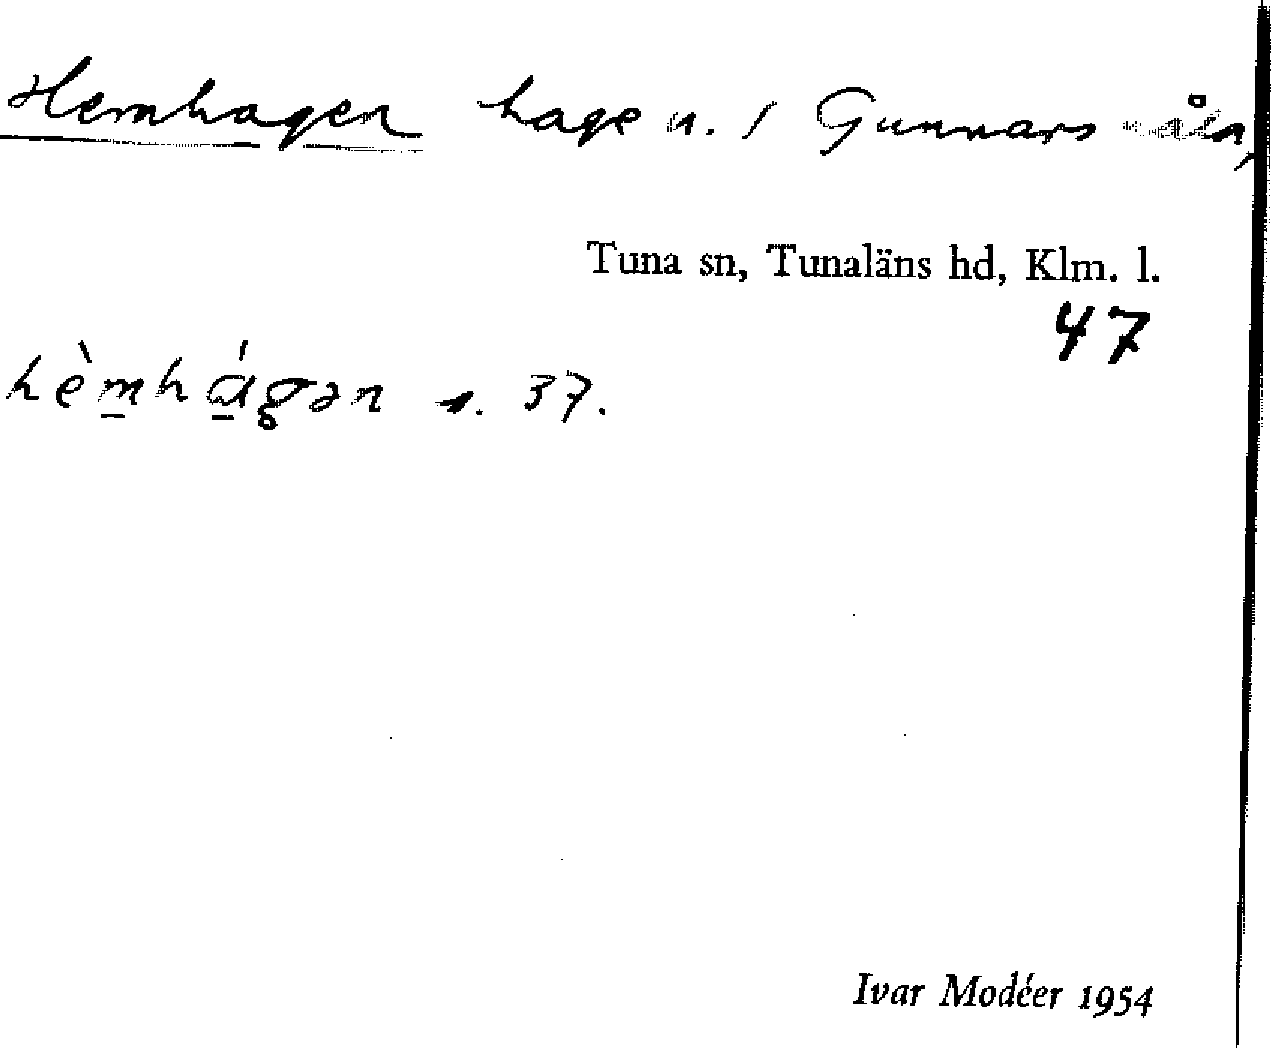 Hemhagen hage n. / Gunnars
Tuna sn, Tunaläns hd, Klm. l.
47
hèmhágən s. 37.
Ivar Modéer 1954